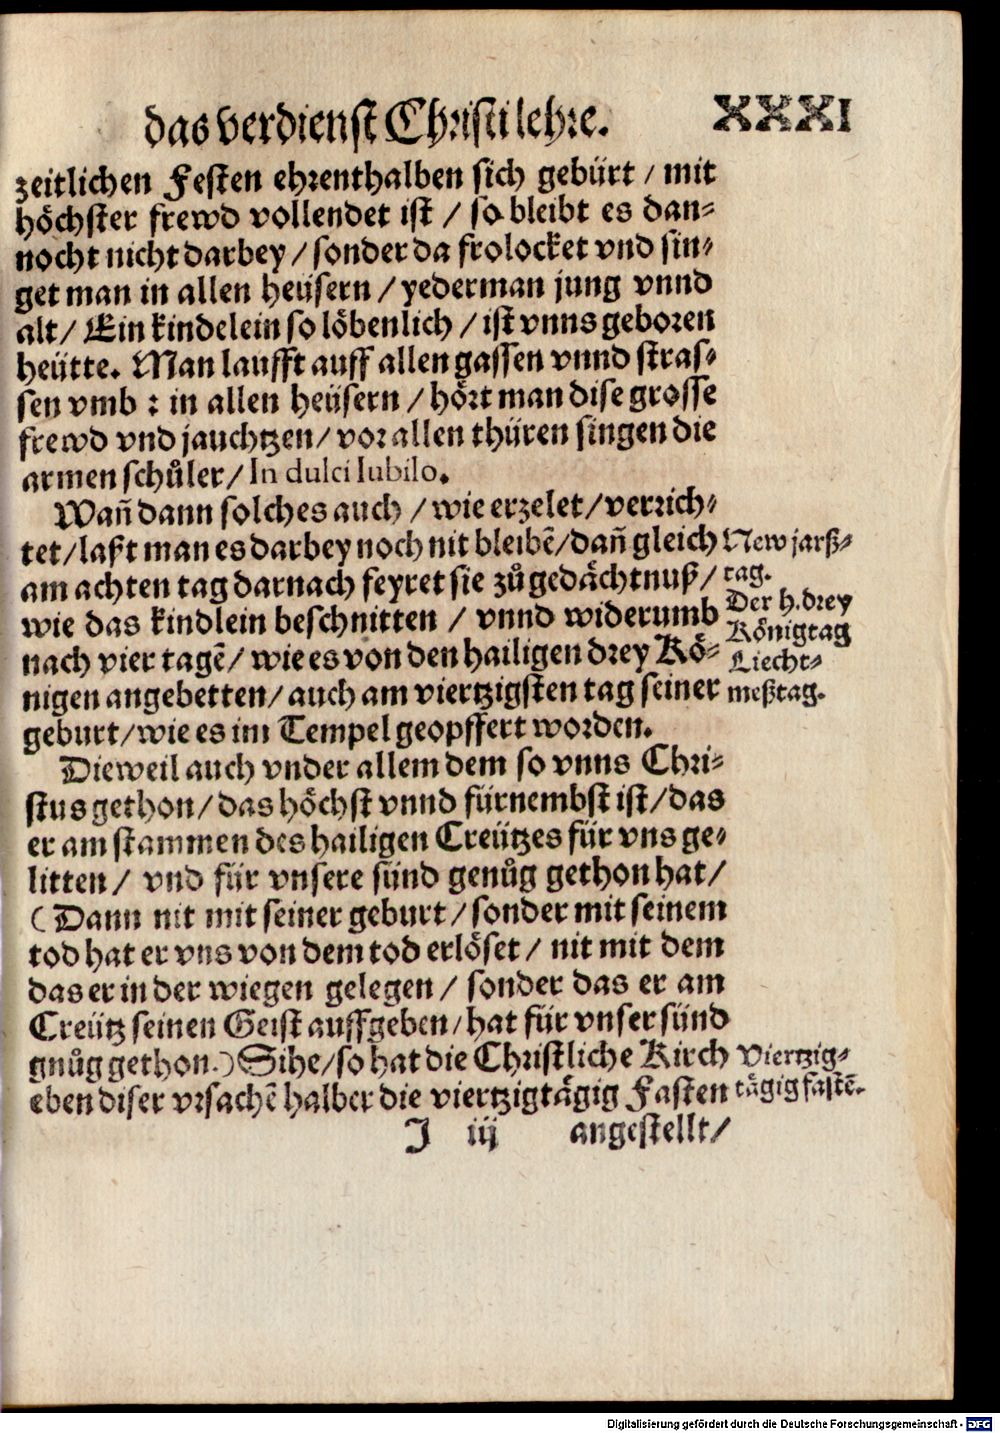 das verdienst Christi lehre. XXXI
zeitlichen Festen ehrenthalben sich gebürt / mit
höchster frewd vollendet ist / so bleibt es dan-
nocht nicht darbey / sonder da frolocket vnd sin-
get man in allen heüsern / yederman jung vnnd
alt / Ein kindelein so löbenlich / ist vnns geboren
heütte. Man laufft auff allen gassen vnnd stras-
sen vmb : in allen heüsern / hört man dise grosse
frewd vnd jauchtzen / vor allen thüren singen die
armen schůler / In dulci Iubilo.
Wañ dann solches auch / wie erzelet / verrich-
tet / laßt man es darbey noch nit bleibē / dañ gleich
am achten tag darnach feyret sie zů gedächtnuß /
wie das kindlein beschnitten / vnnd widerumb
nach vier tagē / wie es von den hailigen drey Kö-
nigen angebetten / auch am viertzigsten tag seiner
geburt / wie es im Tempel geopffert worden.
New jarß-
tag.
Der h. drey
Königtag
Liecht-
meßtag.
Dieweil auch vnder allem dem so vnns Chri-
stus gethon / das höchst vnnd fürnembst ist / das
er am stammen des hailigen Creützes für vns ge-
litten / vnd für vnsere sünd genůg gethon hat /
(Dann nit mit seiner geburt / sonder mit seinem
tod hat er vns von dem tod erlöset / nit mit dem
das er in der wiegen gelegen / sonder das er am
Creütz seinen Geist auffgeben / hat für vnser sünd
gnůg gethon.) Sihe / so hat die Christliche Kirch
eben diser vrsachē halber die viertzigtägig Fasten
Viertzig-
tägig fastē.
J iij angestellt /
Digitalisierung gefördert durch die Deutsche Forschungsgemeinschaft - DFG